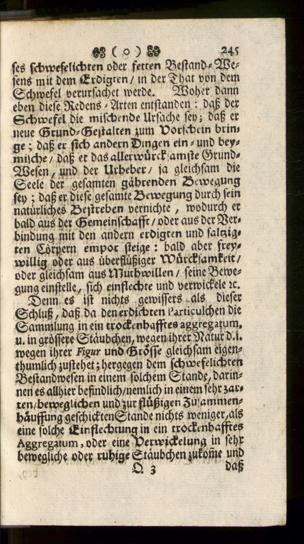 ( 0 ) 245
ses schwefelichten oder fetten Bestand-We-
sens mit dem Erdigten / in der That von dem
Schwefel verursachet werde. Woher dann
eben diese Redens-Arten entstanden: daß der
Schwefel die mischende Ursache sey; daß er
neue Grund-Gestalten zum Vorschein brin-
ge; daß er sich andern Dingen ein- und bey-
mische / daß er das allerwürcksamste Grund-
Wesen, und der Urheber / ja gleichsam die
Seele der gesamten gährenden Bewegung
sey; daß er diese gesamte Bewegung durch sein
natürliches Bestreben verrichte, wodurch er
bald aus der Gemeinschafft / oder aus der Ver-
bindung mit den andern erdigten und saltzig-
ten Cörpern empor steige: bald aber frey-
willig oder aus überflüßiger Würcksamkeit /
oder gleichsam aus Muthwillen / seine Bewe-
gung einstelle, sich einflechte und verwickele ꝛc.
Denn es ist nichts gewissers als dieser
Schluß, daß da den erdichten Particulchen die
Sammlung in ein trockenhafftes aggregatum,
u. in grössere Stäubchen, wegen ihrer Natur d.i.
wegen ihrer Figur und Grösse gleichsam eigen-
thumlich zustehet; hergegen dem schwefelichten
Bestandwesen in einem solchem Stande, darin-
nen es allhier befindlich / nemlich in einem sehr zar-
ten / beweglichen und zur flüßigen Zusammen-
häuffung geschickten Stande nichts weniger, als
eine solche Einflechtung in ein trockenhafftes
Aggregatum, oder eine Verwickelung in sehr
bewegliche oder ruhige Stäubchen zukom̃e und
Q 3 daß